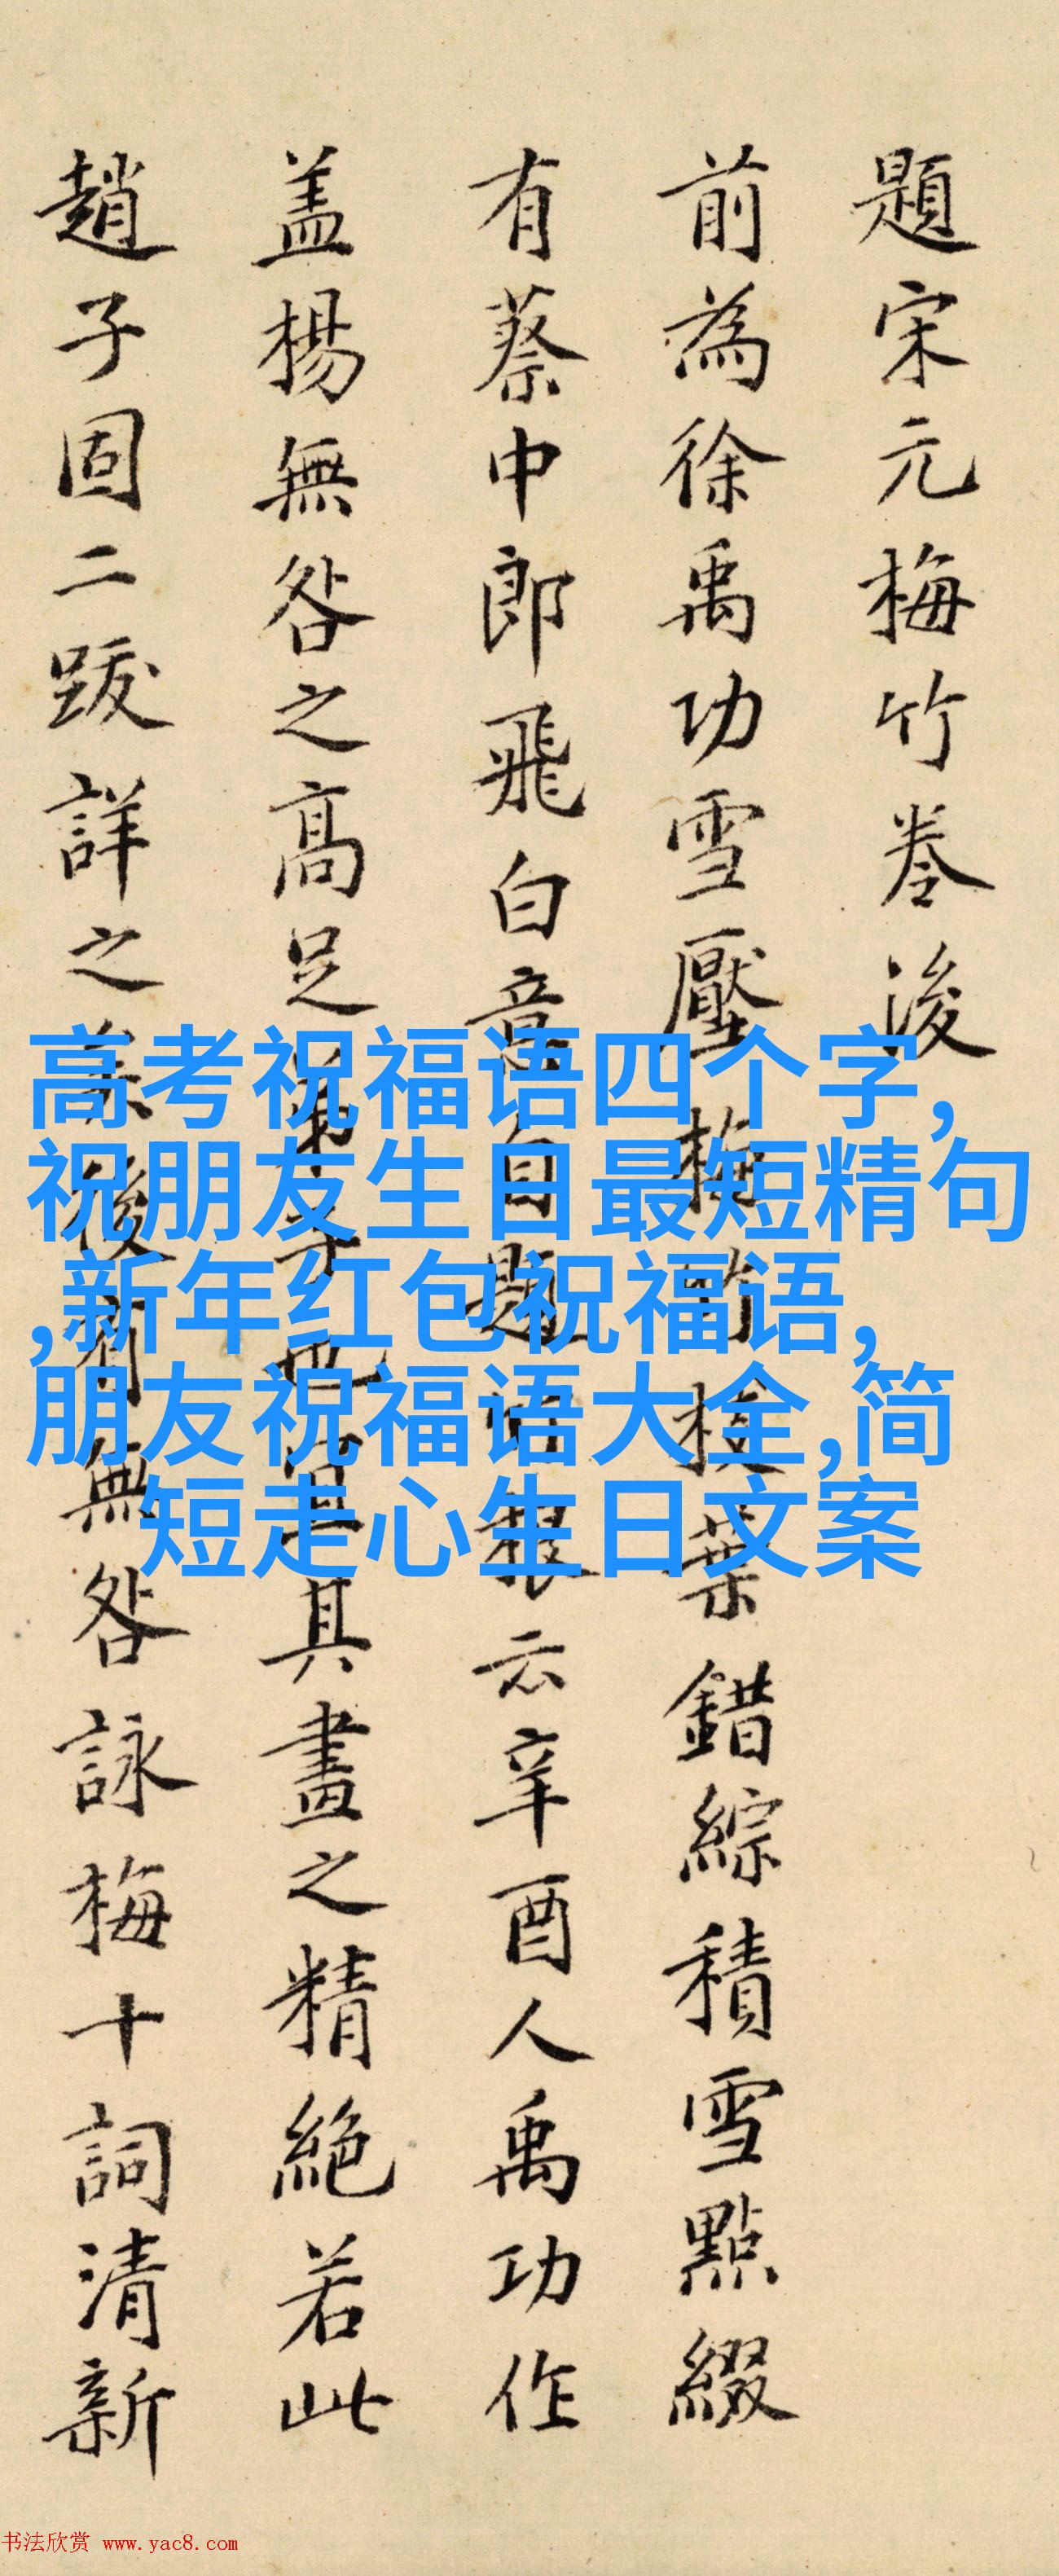 題宋元梅竹卷後
前為徐禹功雪壓梅竹枝葉錯綜積雪點綴
有蔡中郎飛白意自題根云辛酉人禹功作
盖楊無咎之高足弟子也宜其畫之精絕若此
趙子固二跋詳之後有無咎詠梅十詞清新
高考祝福语四个字,
祝朋友生日最短精句
,新年红包祝福语,
朋友祝福语大全,简
短走心生日文案
书法欣赏 www.yac8.com